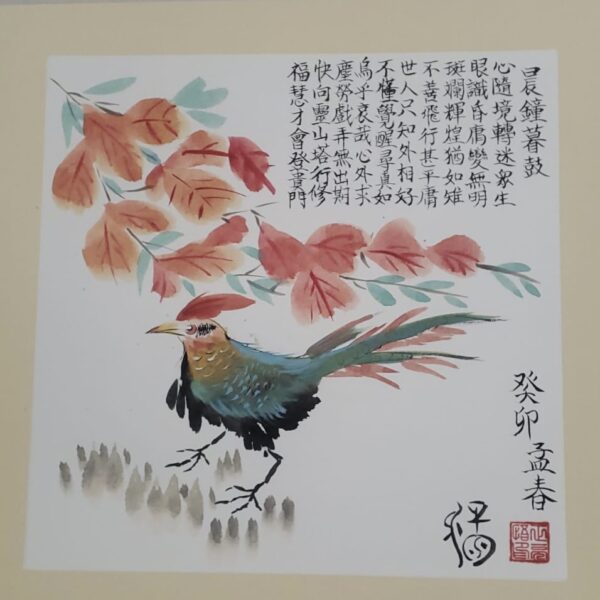 晨鐘暮鼓
心隨境轉迷眾生
眼識昏庸變無明
斑斕輝煌猶如雉
不善飛行甚平庸
世人只知外相好
不懂覺醒尋真如
烏乎哀哉心外求
塵勞戲弄無出期
快向靈山塔行修
福慧才會登貴門
癸卯孟春